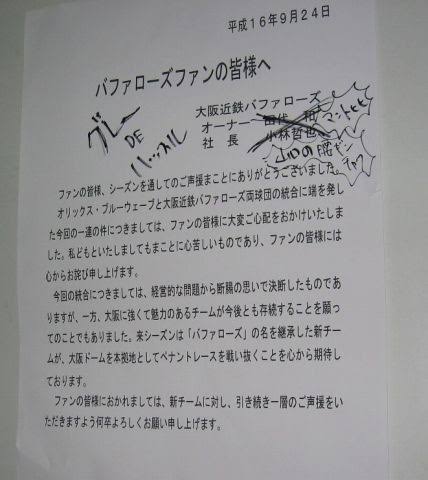 平成16年9月24日
バファローズファンの皆様へ
大阪近鉄バファローズ
オーナー 田代 和
社 長 小林哲也
グレー
DE
ハッスル
マットヒヒ
ファンの皆様、シーズンを通してのご声援まことにありがとうございました。
オリックス・ブルーウェーブと大阪近鉄バファローズ両球団の統合に端を発し
た今回の一連の件につきましては、ファンの皆様に大変ご心配をおかけいたしま
した。私どもといたしましてもまことに心苦しいものであり、ファンの皆様には
心からお詫び申し上げます。
今回の統合につきましては、経営的な問題から断腸の思いで決断したものであ
りますが、一方、大阪に強くて魅力のあるチームが今後とも存続することを願っ
てのことでもありました。来シーズンは「バファローズ」の名を継承した新チー
ムが、大阪ドームを本拠地としてペナントレースを戦い抜くことを心から期待し
ております。
ファンの皆様におかれましては、新チームに対し、引き続き一層のご声援をい
ただきますよう何卒よろしくお願い申し上げます。